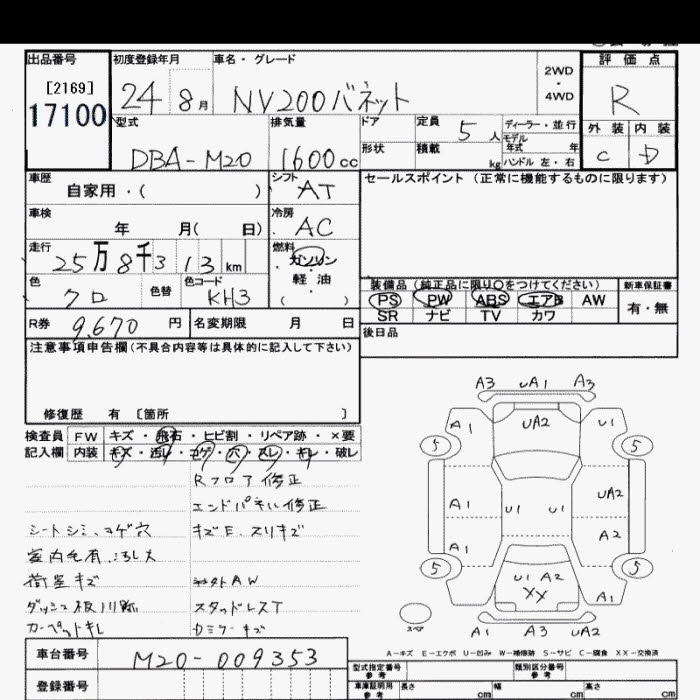 出品番号 初度登録年月 車名・グレード 評価点
[2169]
17100
24 8月 NV200バネット 2WD・4WD R
型式 排気量 ドア 定員 5人 ディーラー・並行 外装 内装
モデル年式 年
DBA-M20 1600cc 形状 積載 kg ハンドル 左・右 C D
車歴 シフト セールスポイント (正常に機能するものに限ります)
自家用・( ) AT
車検 冷房
年 月( 日) AC
走行 燃料
25万8千313km ガソリン
色 色替 色コード 軽油
クロ KH3 ( )
装備品 (純正品に限り○をつけてください) 新車保証書
PS PW ABS エアB AW 有・無
SR ナビ TV カワ
R券 9,670円 名変期限 月 日 後日品
注意事項申告欄(不具合内容等は具体的に記入して下さい)
修復歴 有 〔箇所 〕
検査員 FW キズ・飛石・ヒビ割・リペア跡・×要
記入欄 内装 キズ・汚レ・コゲ・穴・スレ・キレ・破レ
Rフロア修正
エンドパネル修正
シートシミ、コゲ穴 キズE、スリキズ
室内毛有、汚レ大
荷室キズ 社外AW
スタッドレスT
カーペットキレ
A3 UA1 A3
A1 UA2 U1
5 5
A1 U1 U1 UA2
A1 A2
5 U1 A2 5
XX A1
スペア
A1 A3 UA2
A-キズ E-エクボ U-凹み W-補修跡 S-サビ C-腐食 XX-交換済
車台番号 M20-009353
型式指定番号 参考 類別区分番号 参考
登録番号 車庫証明用 参考 長さ cm 幅 cm 高さ cm